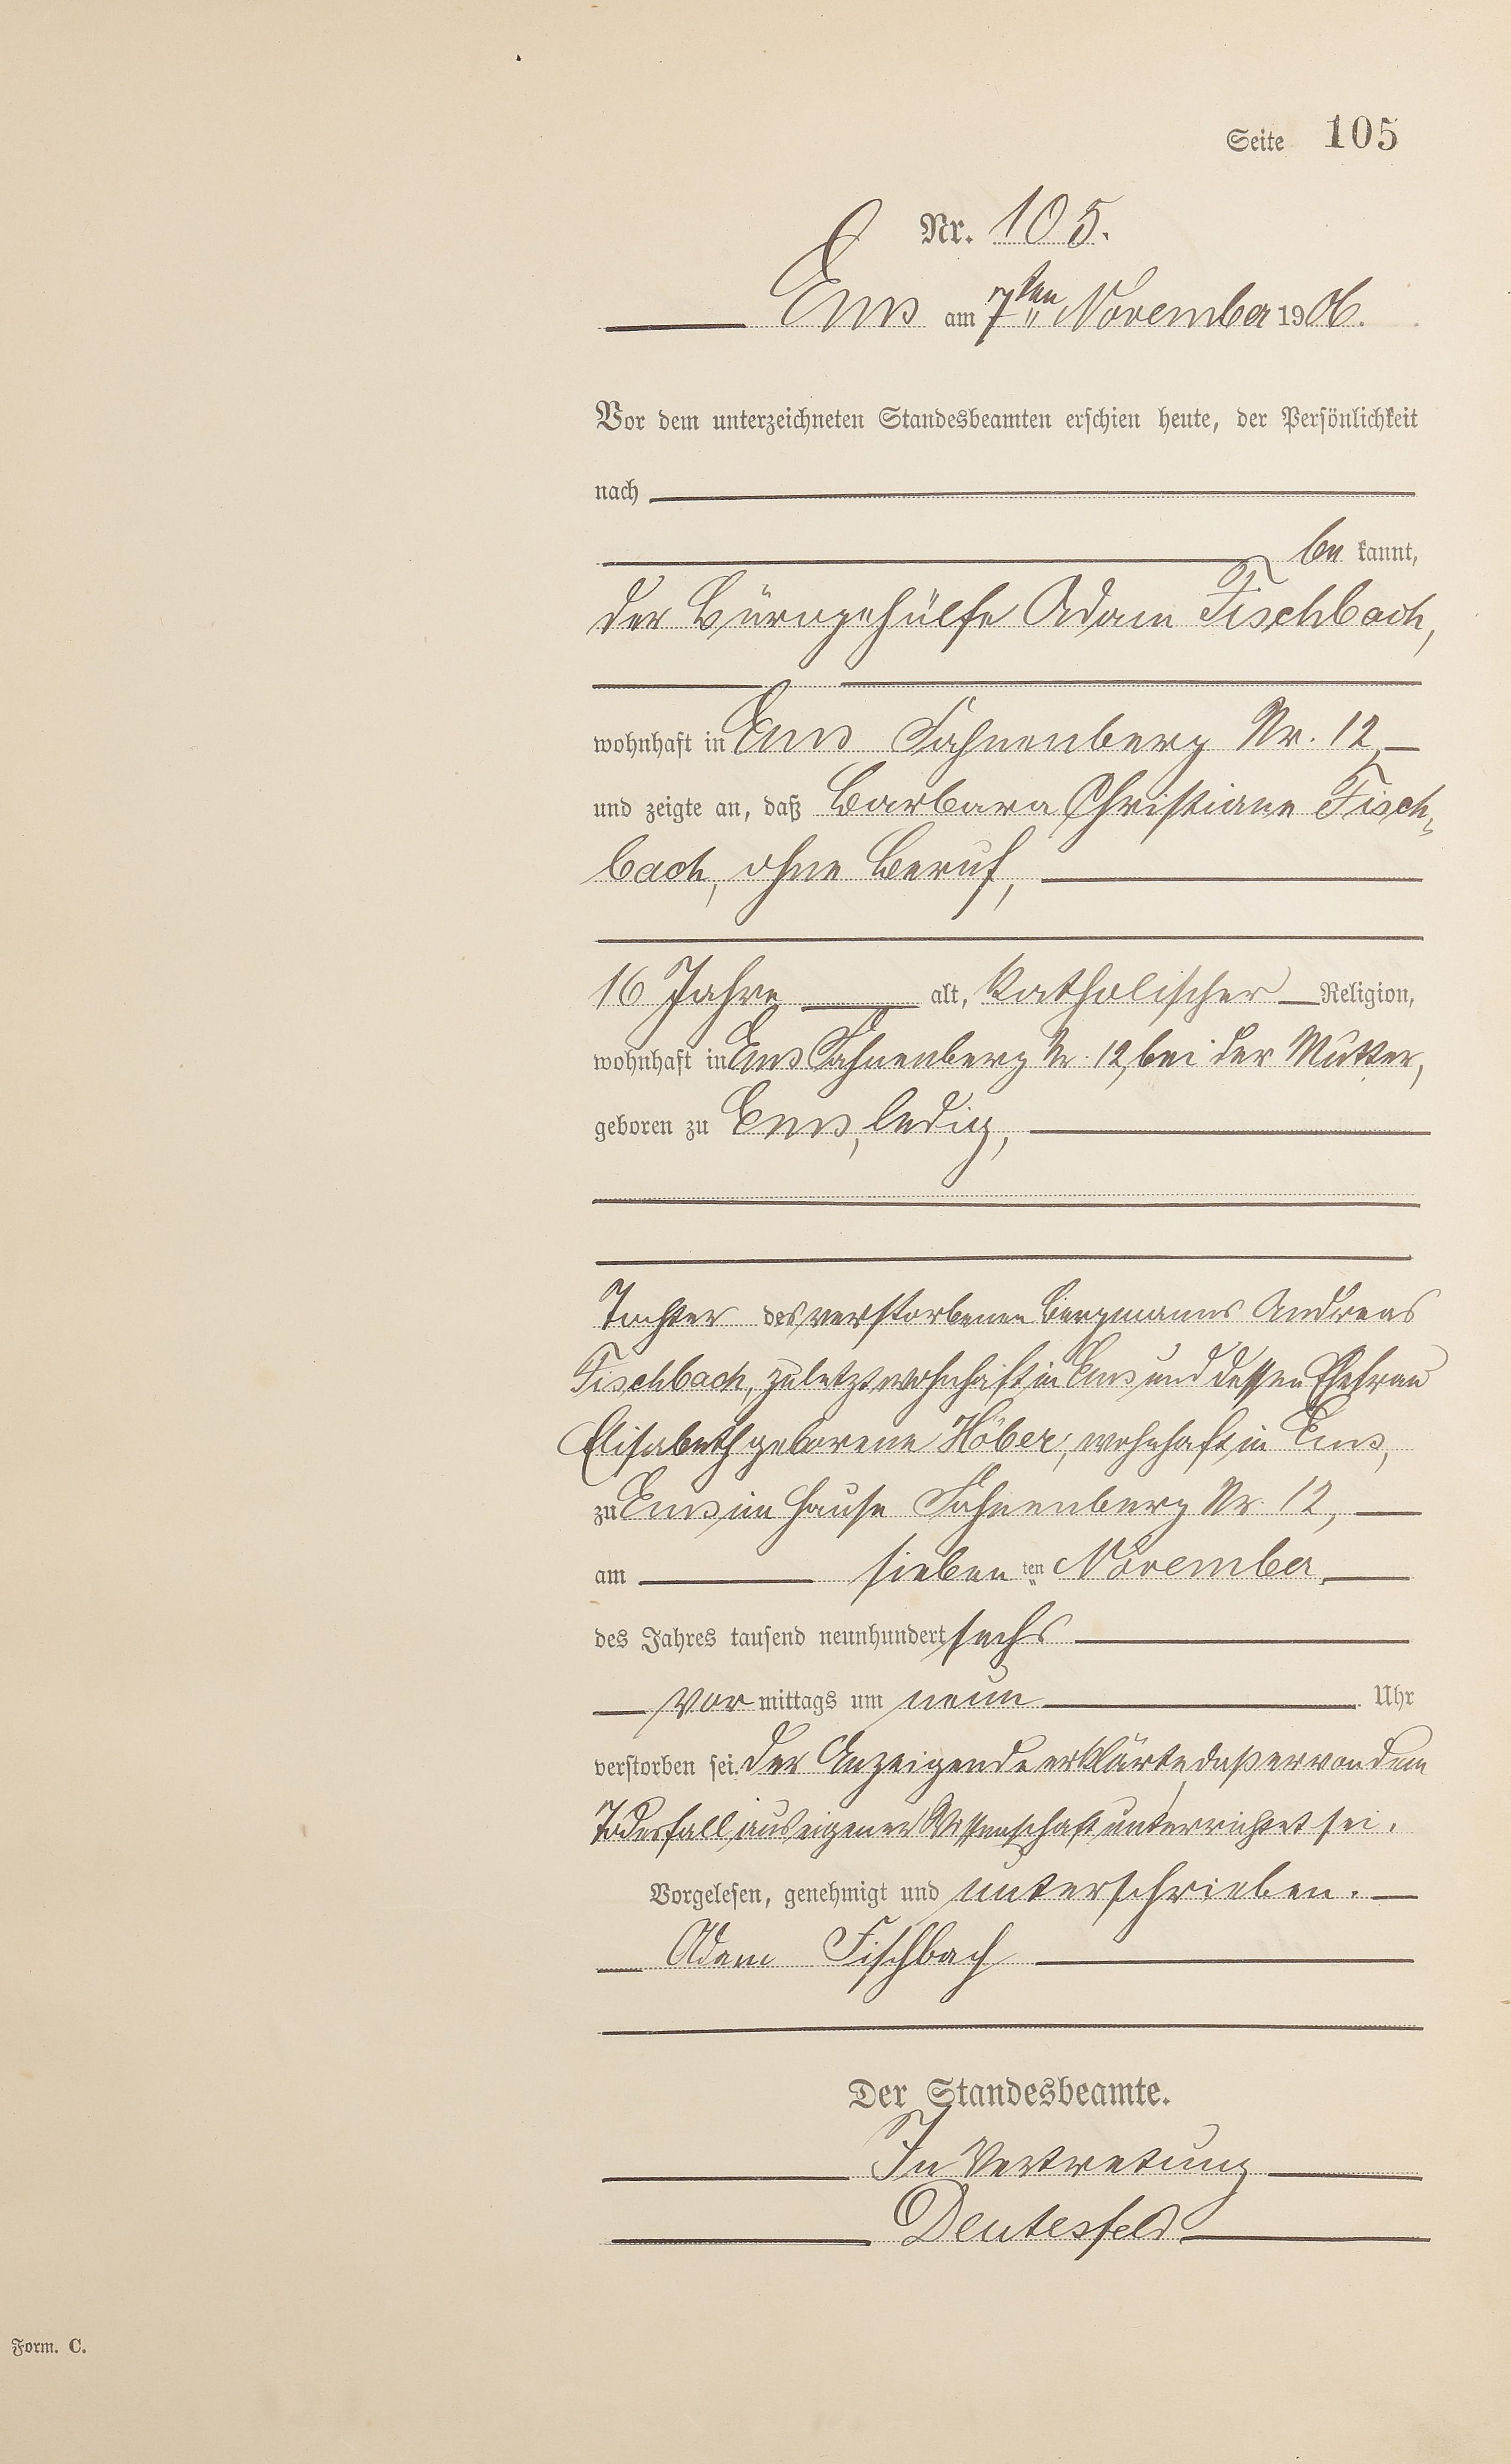 Seite 105
Nr. 105.
Ems am 7ten November 1906.
Vor dem unterzeichneten Standesbeamten erschien heute, der Persönlichkeit
nach
be kannt,
der Bürogehülfe Adam Fischbach,
wohnhaft in Ems Fahnenberg Nr. 12
und zeigte an, daß Barbara Christiane Fisch-
bach, ohne Beruf,
16 Jahre alt, katholischer Religion,
wohnhaft in Ems Fahnenberg Nr. 12, bei der Mutter,
geboren zu Ems, ledig,
Tochter des verstorbenen Bergmanns Andreas
Fischbach, zuletzt wohnhaft in Ems und dessen Ehefrau
Elisabeth geborene Höber, wohnhaft in Ems,
zu Ems im Hause Fahnenberg Nr. 12,
am sieben ten November
des Jahres tausend neunhundert sechs
Vor mittags um neun Uhr
verstorben sei. Der Anzeigende erklärte, daß er von dem
Todesfall aus eigener Wissenschaft unterrichtet sei.
Vorgelesen, genehmigt und unterschrieben.
Adam Fischbach
Der Standesbeamte.
In Vertretung
Deutesfeld
Form. C.